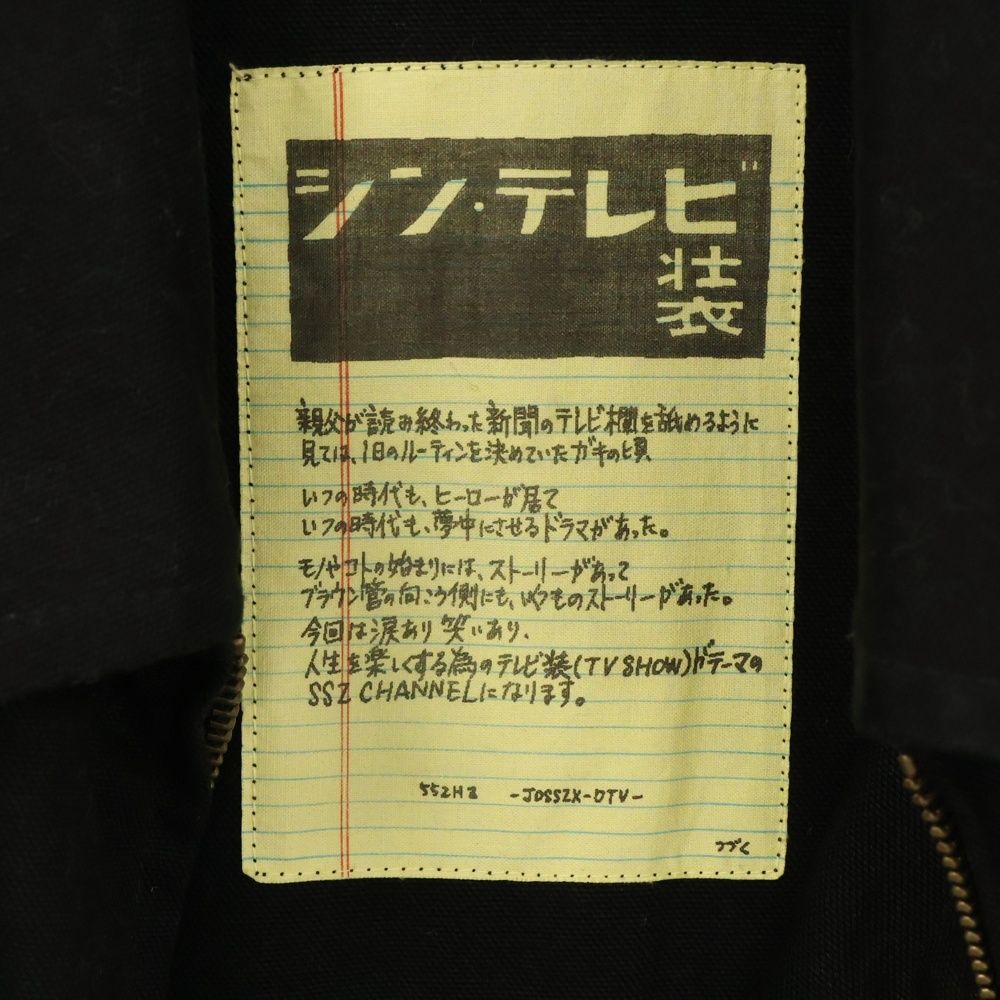 シン・テレビ
装
親父が読み終わった新聞のテレビ欄を舐めるように
見ては、1日のルーティンを決めていたガキの頃
いつの時代も、ヒーローが居て
いつの時代も、夢中にさせるドラマがあった。
モノやコトの始まりには、ストーリーがあって
ブラウン管の向こう側にも、いくつものストーリーがあった。
今回は涙あり笑いあり、
人生を楽しくする為のテレビ装(TV SHOW)がテーマの
SSZ CHANNELになります。
552HZ -JOSSZX-DTV-
つづく